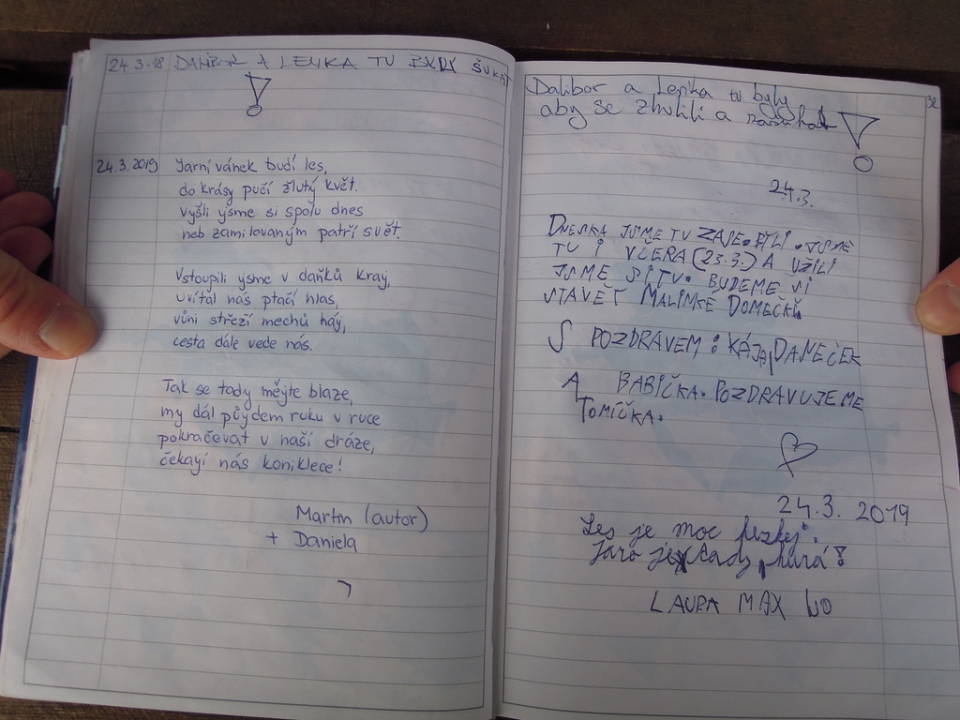 24.3.18 DALIBOR A LENKA TU BYLY ŠUKAT
!
24.3.2019 Jarní vánek budí les,
do krásy pučí žlutý květ.
Vyšli ysme si spolu dnes
neb zamilovaným patří svět.
Vstoupili ysme v daňků kray,
uvítal nás ptačí hlas,
vůni střeží mechů háy,
cesta dále vede nás.
Tak se tady mějte blaze,
my dál půydem ruku v ruce
pokračovat v naší dráze,
čekayí nás koniklece!
Martin (autor)
+ Daniela
Dalibor a Lenka tu byly
aby se zhulili a !
24.3.
DNESKA JSME TU ZASE. BYLI. JSME
TU I VČERA (23.3.) A UŽILI
JSME SI TU. BUDEME SI
STAVĚT MALINKÉ DOMEČKY.
S POZDRAVEM: KÁJA, DANEČEK
A BABIČKA. POZDRAVUJEME
TOMÍČKA.
24.3. 2019
Les je moc hezkej.
Jaro je tady, hurá!
LAURA MAX